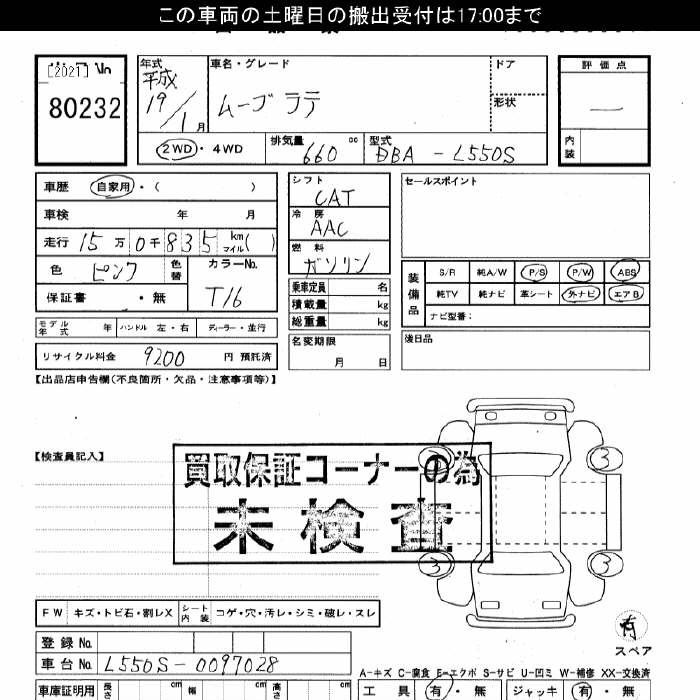 この車両の土曜日の搬出受付は17:00まで
[2021]
80232
年式 車名・グレード ドア 評価点
平成
19/1月 ムーヴ ラテ 形状 —
2WD・4WD 排気量 660 cc 型式 DBA-L550S 内装
車歴 自家用・( )
車検 年 月
走行 15万0千835 km マイル( )
色 ピンク 色替 カラーNo. T16
保証書 ・無
モデル年式 年 ハンドル 左・右 ディーラー・並行
リサイクル料金 9200 円 預託済
シフト CAT
冷房 AAC
燃料 ガソリン
乗車定員 名
積載量 kg
総重量 kg
名変期限
月 日
セールスポイント
装備品 S/R 純A/W P/S P/W ABS
純TV 純ナビ 革シート 外ナビ エアB
ナビ型番：
後日品
【出品店申告欄(不良箇所・欠品・注意事項等)】
【検査員記入】
買取保証コーナーの為
未検査
3 3
3 3
有
スペア
FW キズ・トビ石・割レX シート内装 コゲ・穴・汚レ・シミ・破レ・スレ
登録 No.
車台 No. L550S-0097028
A-キズ C-腐食 E-エクボ S-サビ U-凹ミ W-補修 XX-交換済
車庫証明用 長さ cm 幅 cm 高さ cm 工具 有・無 ジャッキ 有・無